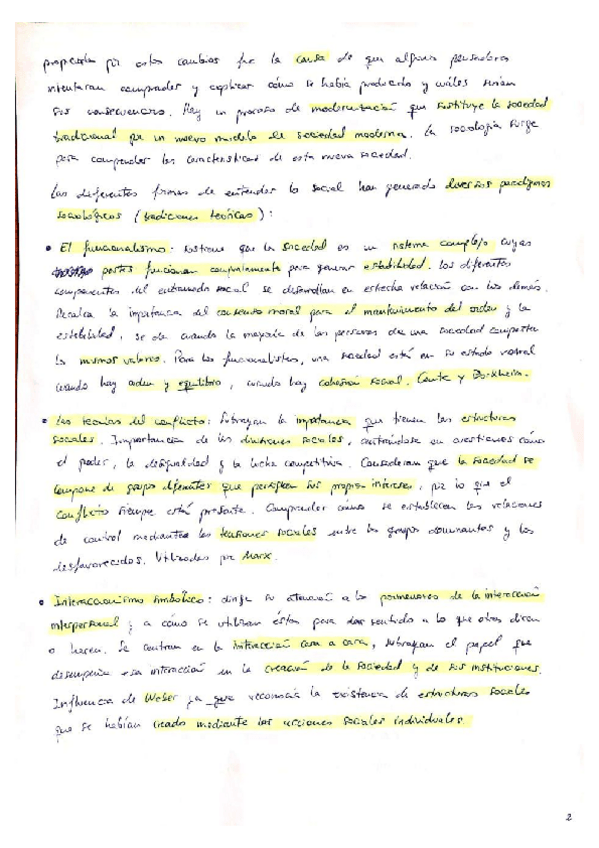 por estos cambios fue la causa de que algunos pensadores
intentaran comprender y explicar cómo se había producido y cuáles serían
sus consecuencias. Hay un proceso de modernización que sustituye la sociedad
tradicional por un nuevo modelo de sociedad moderna. La sociología surge
para comprender las características de esta nueva sociedad.
Las diferentes formas de entender lo social han generado diversos paradigmas
sociológicos (tradiciones teóricas):
• El funcionalismo: sostiene que la sociedad es un sistema complejo cuyas
partes funcionan conjuntamente para generar estabilidad. Los diferentes
componentes del entramado social se desarrollan en estrecha relación con los demás.
Recalca la importancia del consenso moral para el mantenimiento del orden y la
estabilidad, se da cuando la mayoría de las personas de una sociedad comparten
los mismos valores. Para los funcionalistas, una sociedad está en su estado normal
cuando hay orden y equilibrio, cuando hay cohesión social. Comte y Durkheim.
• Las teorías del conflicto: Subrayan la importancia que tienen las estructuras
sociales. Importancia de las divisiones sociales, centrándose en cuestiones como
el poder, la desigualdad y la lucha competitiva. Consideran que la sociedad se
compone de grupos diferentes que persiguen sus propios intereses, por lo que el
conflicto siempre está presente. Comprender cómo se establecen las relaciones
de control mediante las tensiones sociales entre los grupos dominantes y los
desfavorecidos. Utilizadas por Marx.
• Interaccionismo simbólico: dirige su atención a los pormenores de la interacción
interpersonal y a cómo se utilizan éstos para dar sentido a lo que otros dicen
o hacen. Se centran en la interacción cara a cara, subrayan el papel que
desempeña esa interacción en la creación de la sociedad y de sus instituciones.
Influencia de Weber ya que reconocía la existencia de estructuras sociales
que se habían creado mediante las acciones sociales individuales.
2